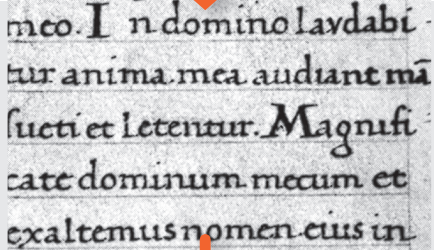 meo. I n domino lavdabi
tur anima mea audiant mā
sueti et letentur. Magnifi
cate dominum mecum et
exaltemus nomen eius in